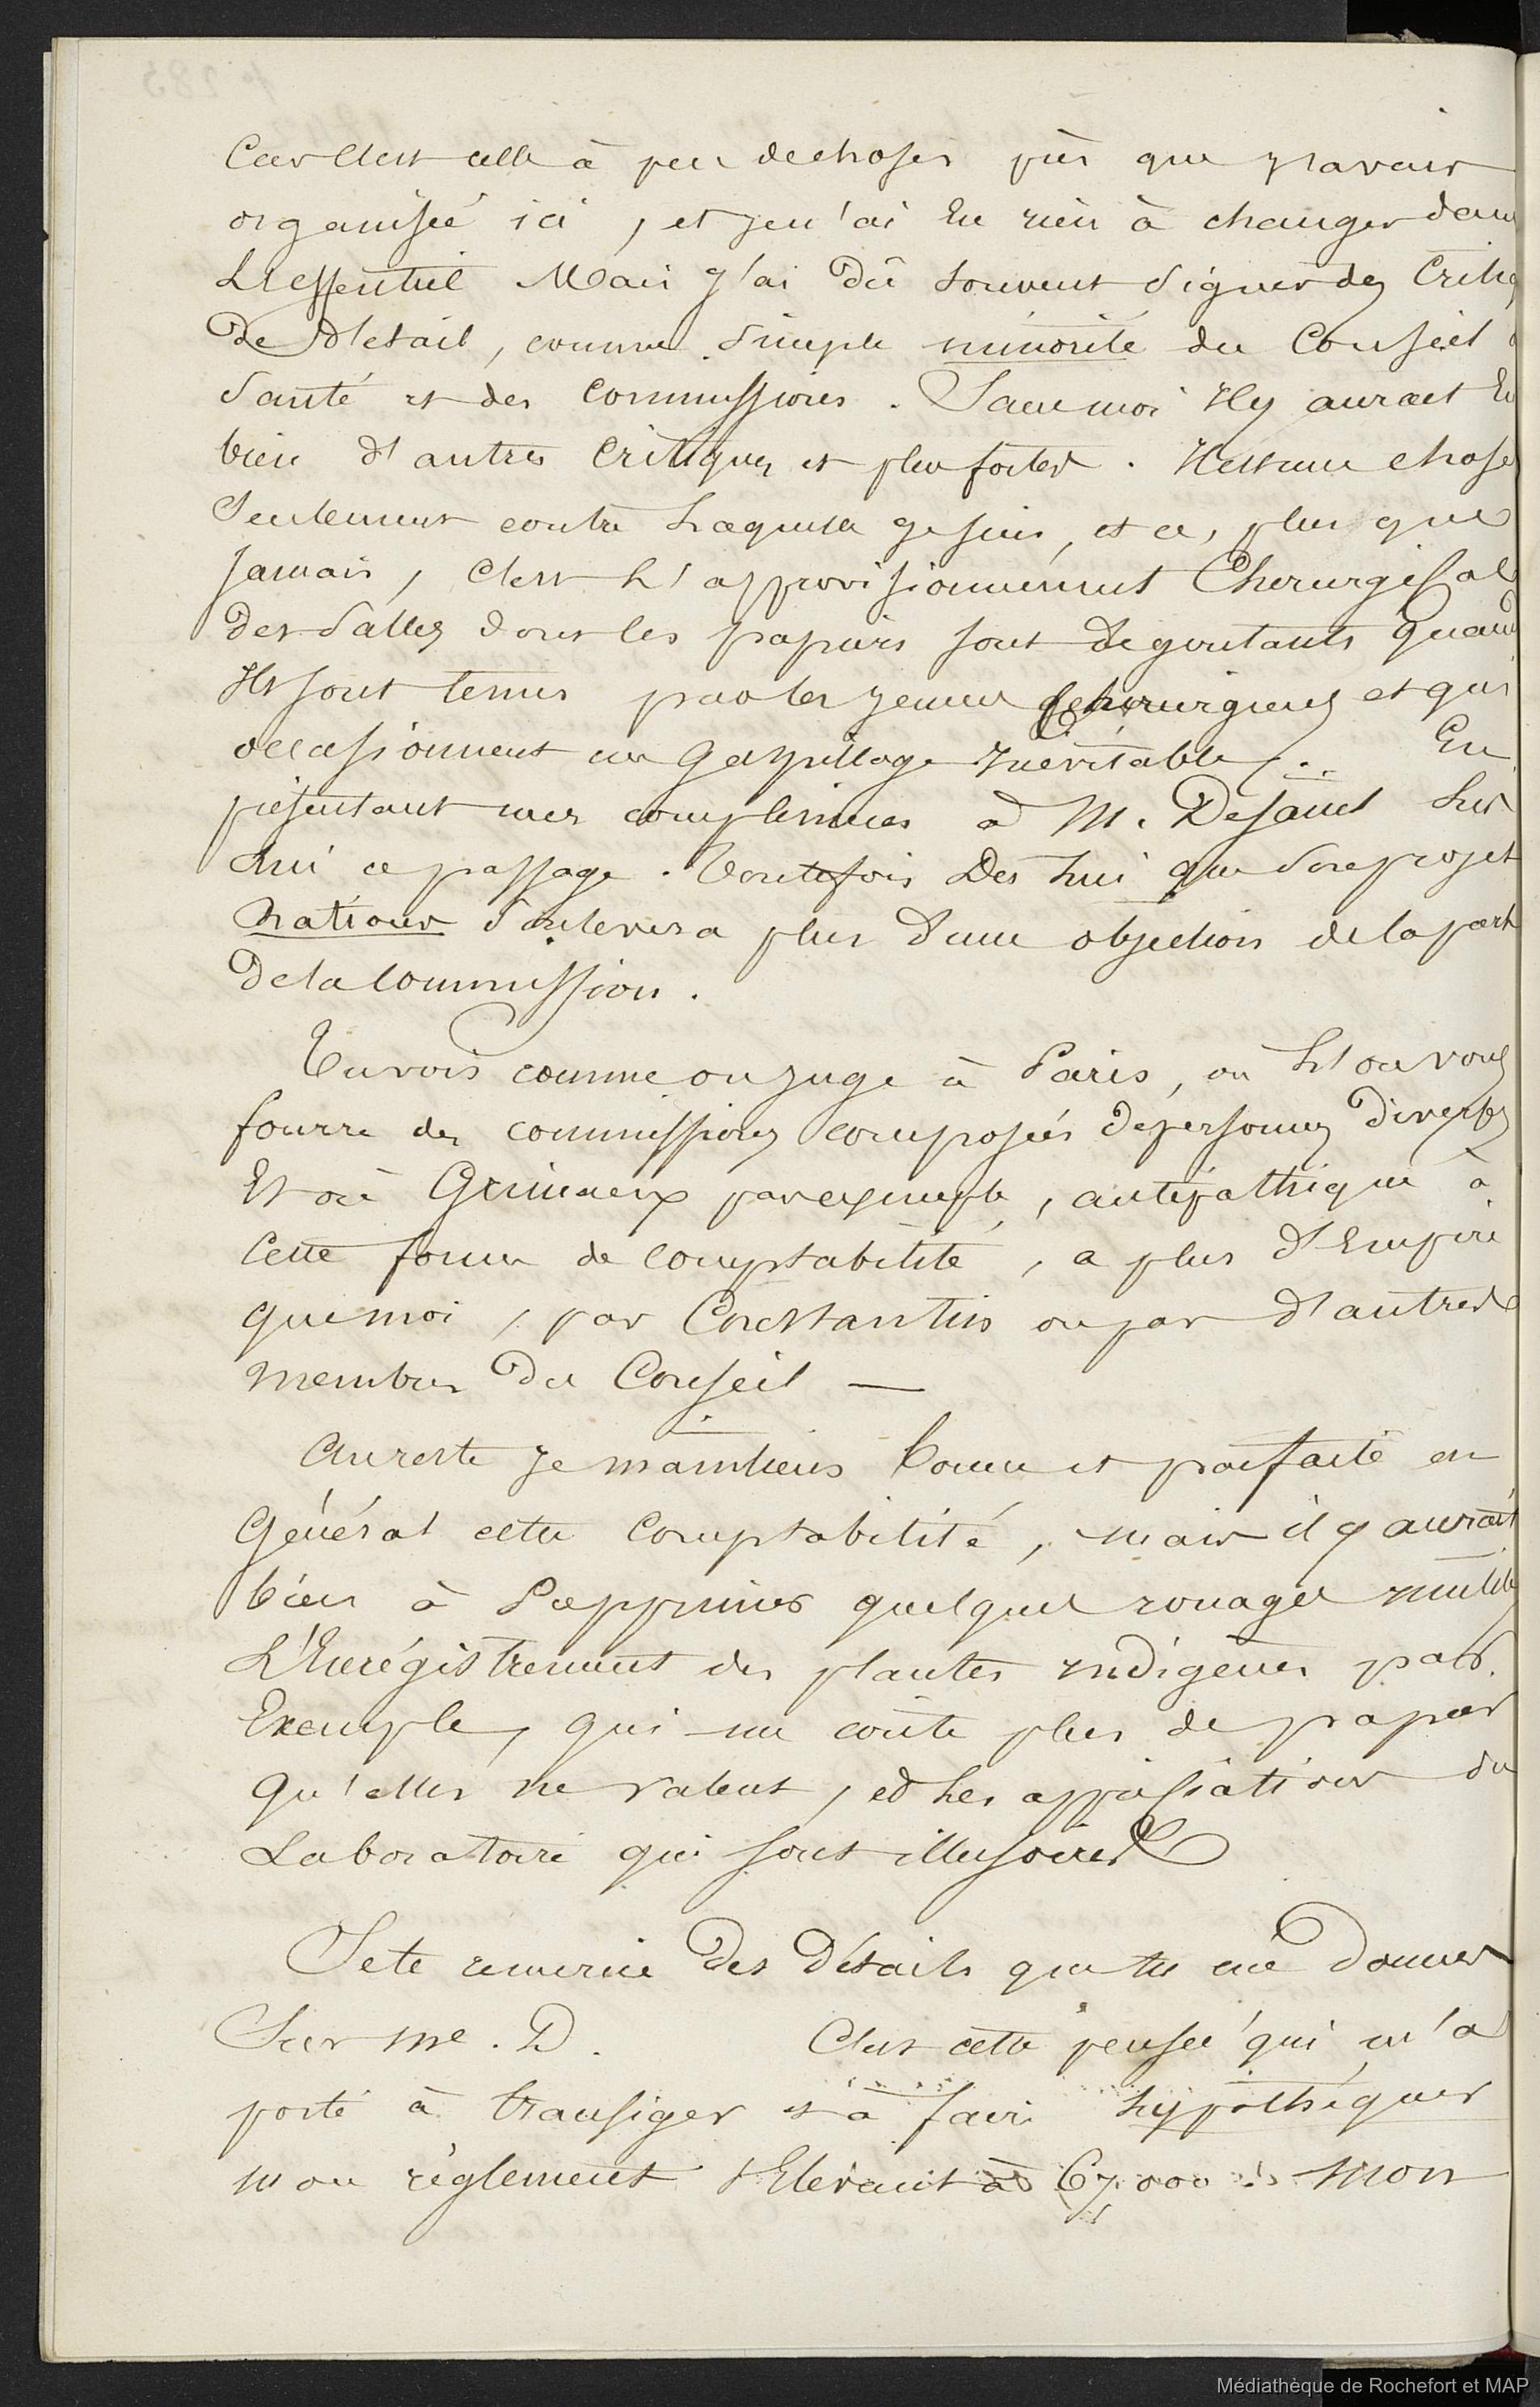 Car C'est celle à peu de choses près que j'avais
organisée ici, et je n'ai Eu rien à changer dans
L'essentiel Mais j'ai Dû souvent signer des Critiq
De Détail, comme simple minorité du Conseil
Santé et des Commissions. Sans moi Il y aurait Eu
bien d'autres Critiques et plus fortes. Il est une chose
Seulement contre Laquelle je suis, et ce, plus que
Jamais, C'est L'approvisionnement Chirurgical
Des Salles dont les papiers sont dégoutants Quand
Ils sont tenus par les jeunes chirurgiens et qui
occasionnent un Gaspillage Inévitable. En
présentant mes compliments à M. Dejaut Lis
Lui ce passage. Toutefois Dès Lui que Son projet
Rations soulevera plus d'une objection de la part
De la Commission.
Tu vois comme on juge à Paris, où L'on vous
fourre des commissions composées de personnes Diverses
Et où Grimaux par exemple, antipathique à
Cette forme de Comptabilité, a plus d'Empire
que moi, par Constantin ou par d'autres
membres Du Conseil —
Au reste je maintiens bonne et parfaite en
Général cette Comptabilité, mais il y aurait
bien à Supprimer quelques rouages inutiles
L'Enrégistrement des plantes indigènes par
Exemple, qui me coûte plus de papier
Qu'elles ne Valent, et les appréciations du
Laboratoire qui sont illusoires
Je te remercie Des Détails que tu me Donnes
Sur Me. D. C'est cette pensée qui m'a
porté à transiger et à faire hypothéquer
mon règlement s'Elevant à 67.000 : mon
Médiathèque de Rochefort et MAP